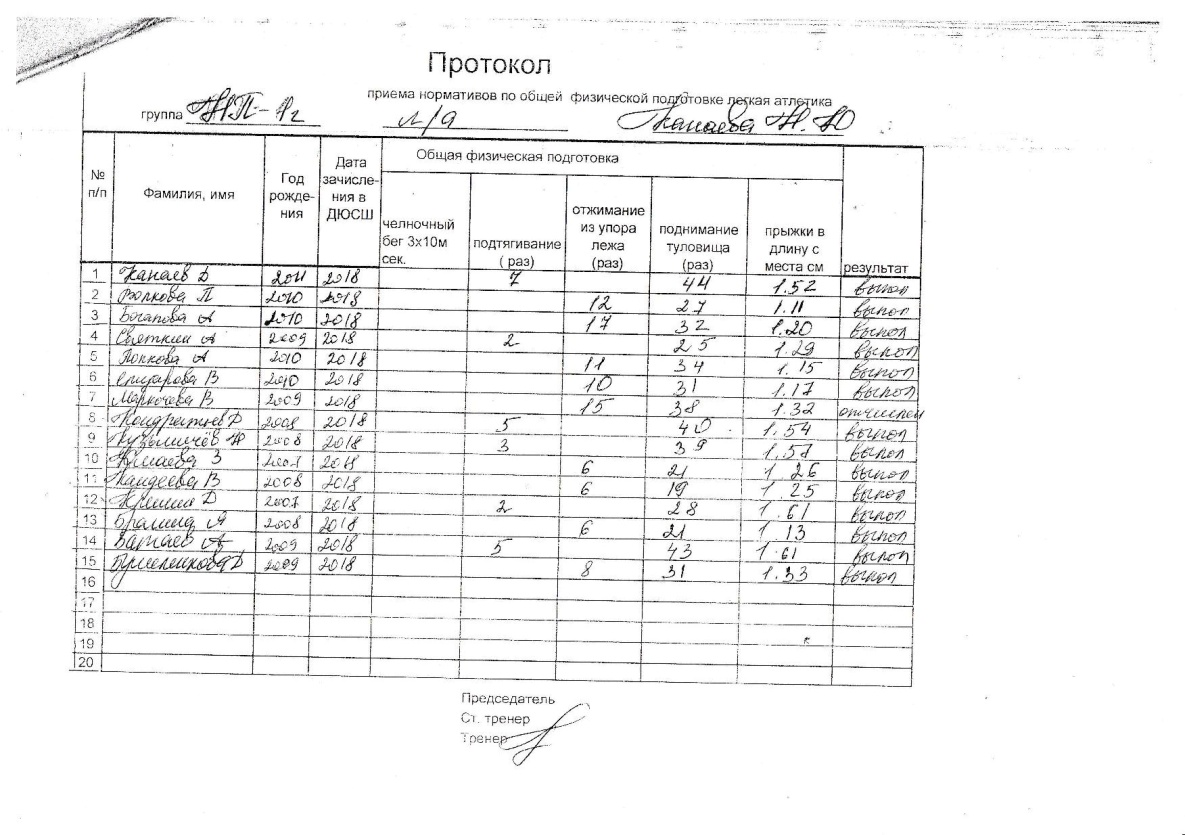 Протокол
приема нормативов по общей физической подготовке легкая атлетика
группа НП-1г л/а Канаева Н.Ю
№ п/п Фамилия, имя Год рождения Дата зачисления в ДЮСШ Общая физическая подготовка результат
челночный бег 3х10м сек. подтягивание ( раз) отжимание из упора лежа (раз) поднимание туловища (раз) прыжки в длину с места см
1 Канаев Д 2011 2018 7 44 1.52 выпол
2 П 2010 2018 12 27 1.11 выпол
3 А 2010 2018 17 32 1.20 выпол
4 Святкин А 2009 2018 2 25 1.29 выпол
5 А 2010 2018 11 34 1.15 выпол
6 В 2010 2018 10 31 1.17 выпол
7 В 2009 2018 15 38 1.32 отчислен
8 Д 2008 2018 5 40 1.54 выпол
9 2008 2018 3 39 1.57 выпол
10 З 2007 2018 6 21 1 26 выпол
11 В 2008 2018 6 19 1.25 выпол
12 Д 2007 2018 2 28 1.61 выпол
13 2008 2018 6 21 1 13 выпол
14 А 2009 2018 5 43 1.61 выпол
15 2009 2018 8 31 1.33 выпол
16
17
18
19
20
Председатель
Ст. тренер
Тренер